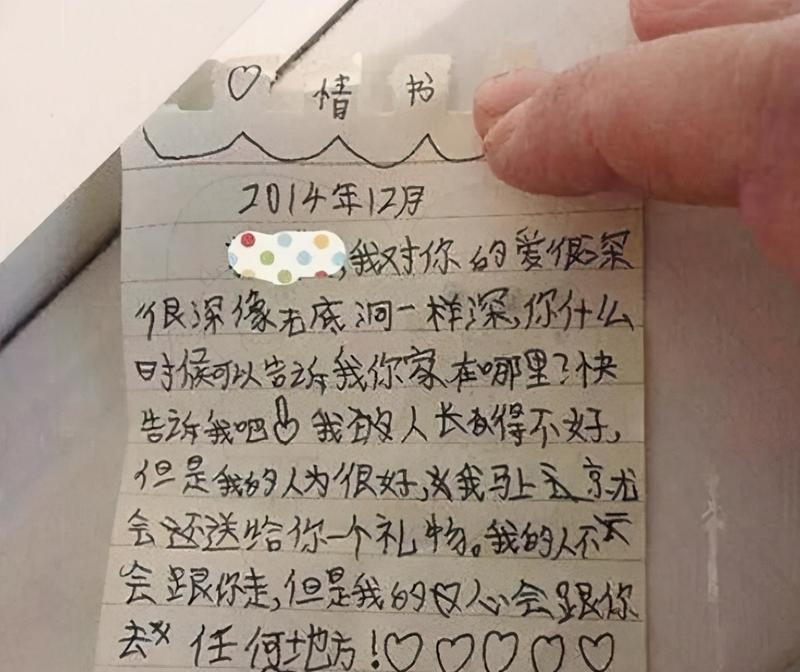 ♡ 情书
2014年12月
,我对你的爱很深
很深像无底洞一样深,你什么
时候可以告诉我你家在哪里?快
告诉我吧 我的人长的得不好,
但是我的人为很好,我马上就
会送给你一个礼物。我的人不
会跟你走,但是我的心会跟你
去 任何地方!♡♡♡♡♡